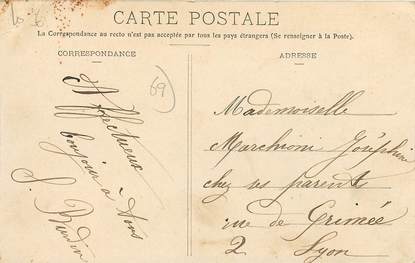 CARTE POSTALE
La Correspondance au recto n'est pas acceptée par tous les pays étrangers (Se renseigner à la Poste).
CORRESPONDANCE
ADRESSE
69
Affectueux
bonjour à tous
Mademoiselle
Marchioni Joséphine
chez ses parent
rue de Crimée
2 Lyon